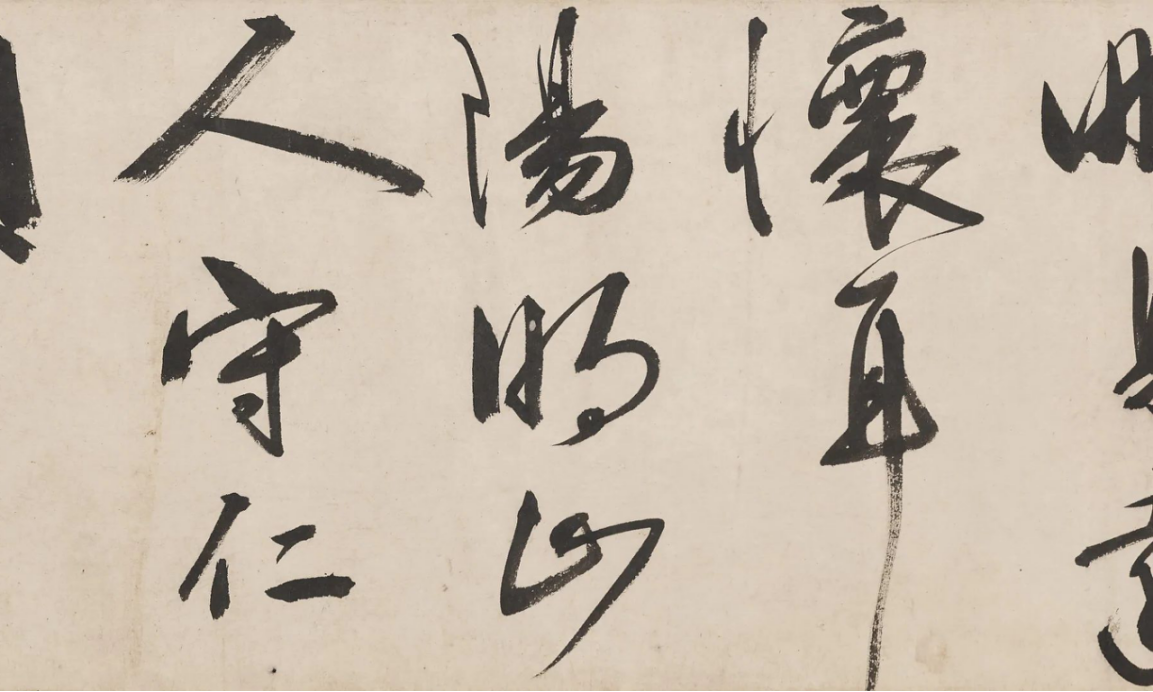 懷耳
陽明山
人守仁